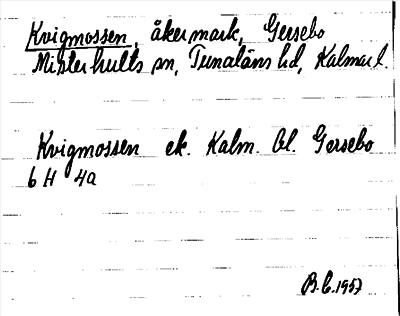 Kvigmossen, åkermark, Gersebo
Misterhults sn, Tunaläns hd, Kalmar l.
Kvigmossen ek. Kalm. bl. Gersebo
6 H 4a
B.C. 1957